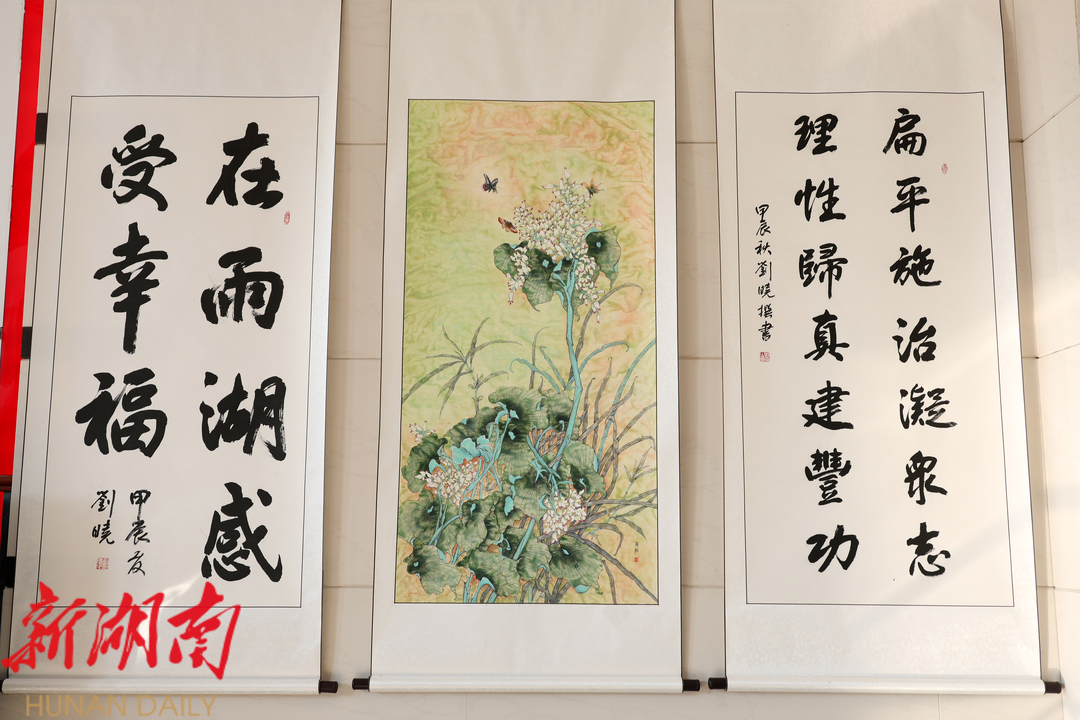 在雨湖感
受幸福
甲辰夏
劉曉
扁平施治凝眾志
理性歸真建豐功
甲辰秋劉曉撰書
新湖南
HUNAN DAILY